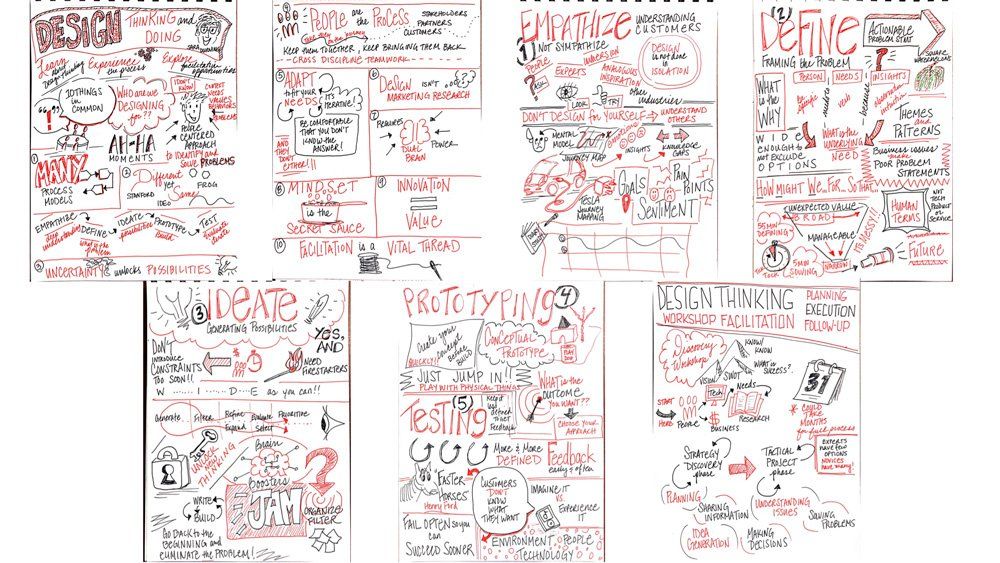 DESIGN
THINKING and
DOING
Learn
Experience
the process
Explore
facilitation
opportunities
10 THINGS
in
COMMON
WHO are we
DESIGNING
for ??
I DON'T
KNOW!
AH-HA
MOMENTS
PEOPLE
CENTERED
APPROACH
TO IDENTIFY and
SOLVE PROBLEMS
1
MANY
PROCESS
MODELS
2
Different
yet
Same
STANFORD
IDEO
FROG
EMPATHIZE
DEFINE
IDEATE
PROTOTYPE
TEST
deep
understanding
what is the
problem
possibilities
Build
3
UNCERTAINTY unlocks POSSIBILITIES
4
PEOPLE ARE the PROCESS
STAKEHOLDERS
PARTNERS
CUSTOMERS
KEEP THEM TOGETHER, KEEP BRINGING THEM BACK
CROSS DISCIPLINE TEAMWORK
5
ADAPT
to fit your
NEEDS
IT'S
ITERATIVE!
BE COMFORTABLE
THAT YOU DON'T
KNOW the
ANSWER!
AND
THEY
DON'T
EITHER!!
6
DESIGN ISN'T
MARKETING RESEARCH
7
REQUIRES
DUAL
BRAIN
POWER
8
MINDSET
is the
SECRET SAUCE
9
INNOVATION
=
VALUE
10
FACILITATION is a VITAL THREAD
EMPATHIZE
UNDERSTANDING
CUSTOMERS
1
NOT SYMPATHIZE
PEOPLE
ASK
EXPERTS
IMMERSION
ANALOGOUS
INSPIRATION
other
industries
DESIGN
is not done
in
ISOLATION
LOOK
TRY
DON'T DESIGN for YOURSELF
UNDERSTAND
OTHERS
MENTAL
MODEL
INSIGHTS
KNOWLEDGE
GAPS
JOURNEY MAP
TESLA
JOURNEY
MAPPING
GOALS
PAIN
POINTS
SENTIMENT
2
DEFINE
ACTIONABLE
PROBLEM STMT
FRAMING the PROBLEM
SQUARE
WATERMELONS
WHAT
IS the
WHY
PERSON
NEEDS
INSIGHTS
be specific
need to
verb
because
observation
intuition
THEMES
and
PATTERNS
WIDE
ENOUGH to
NOT EXCLUDE
OPTIONS
WHAT IS the
UNDERLYING
NEED
Business issues
make
POOR PROBLEM
STATEMENTS
HOW MIGHT WE...FOR...SO THAT
55 MIN
DEFINING
5 MIN
SOLVING
TICK TOCK
UNEXPECTED VALUE
BROAD
MANAGEABLE
NARROW
IT'S MESSY!!
HUMAN
TERMS
NOT
TECH
PRODUCT
OR
SERVICE
Future
3
IDEATE
GENERATING POSSIBILITIES
DON'T
INTRODUCE
CONSTRAINTS
TOO SOON!!
YES,
AND
NEED
FIRESTARTERS
W......I......D...E as you can!!
Generate
Filter
Refine
Expand
Evaluate
Select
Prioritize
UNLOCK
NEW
THINKING
Brain
boosters
JAM
WRITE
BUILD
ORGANIZE
FILTER
GO BACK to the
BEGINNING and
ELIMINATE the PROBLEM!
PROTOTYPING
4
Create your
concept
QUICKLY!
before
BUILD
CONCEPTUAL
PROTOTYPE
JUST JUMP IN!!
PLAY WITH PHYSICAL THINGS
WHAT is the
OUTCOME
YOU WANT??
CHOOSE YOUR
APPROACH
TESTING
5
Keep it
just
defined
to get
Feedback
MORE & MORE
DEFINED
Feedback
early & often
FASTER
HORSES
Henry Ford
CUSTOMERS
DON'T
KNOW
WHAT
THEY WANT
IMAGINE IT
VS.
EXPERIENCE
IT
FAIL OFTEN so you
can
SUCCEED SOONER
ENVIRONMENT, PEOPLE
TECHNOLOGY
DESIGN THINKING
WORKSHOP FACILITATION
PLANNING
EXECUTION
FOLLOW-UP
Discovery
Workshop
KNOW
KNOW
WHAT is
SUCCESS?
VISION
SWOT
Tech
Needs
START
HERE
People
$
BUSINESS
RESEARCH
31
* COULD
TAKE
MONTHS
for full process
EXPERTS
HAVE FEW
OPTIONS
NOVICES
HAVE MANY!
STRATEGY
DISCOVERY
phase
TACTICAL
PROJECT
phase
PLANNING
SHARING
INFORMATION
UNDERSTANDING
ISSUES
SOLVING
PROBLEMS
IDEA
GENERATION
MAKING
DECISIONS